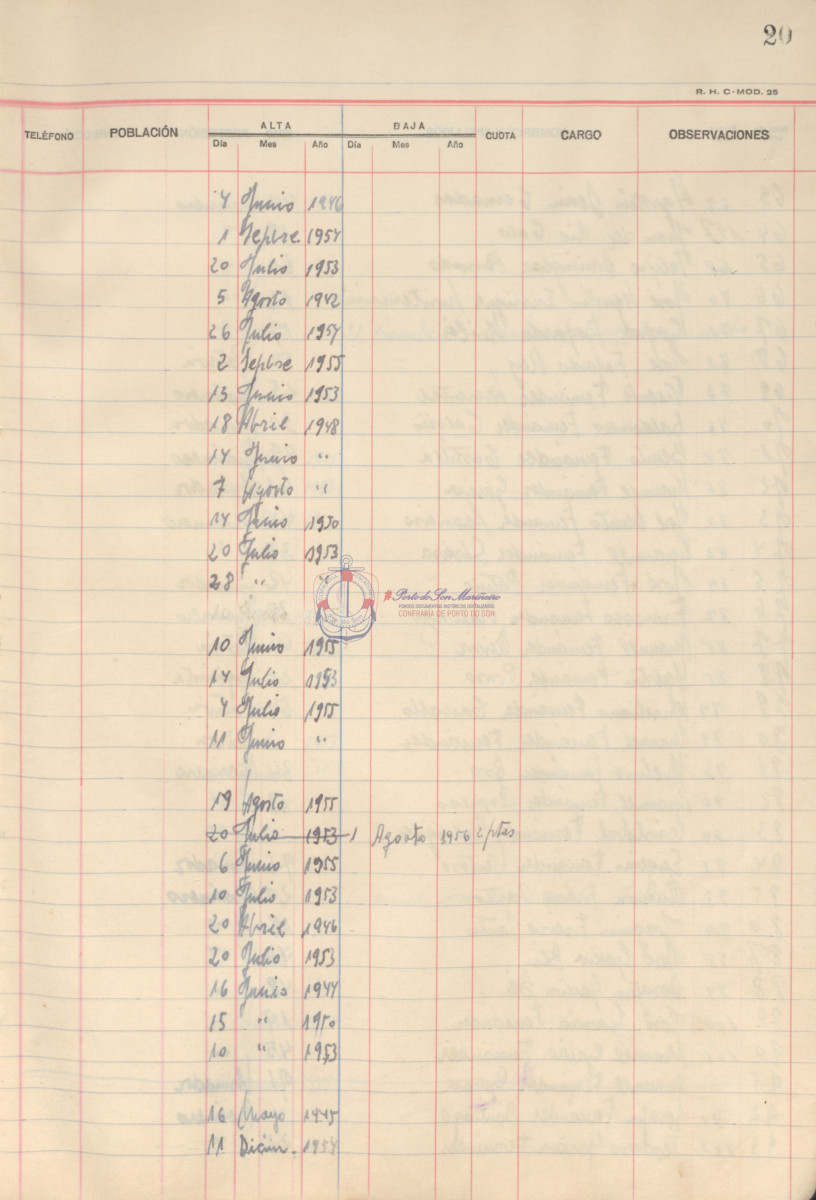 20
R. H. C-MOD. 25
TELÉFONO POBLACIÓN ALTA BAJA CUOTA CARGO OBSERVACIONES
Día Mes Año Día Mes Año
4 Junio 1946
1 Sepbre. 1954
20 Julio 1953
5 Agosto 1942
26 Julio 1954
2 Sepbre 1955
13 Junio 1953
18 Abril 1948
14 Junio "
7 Agosto "
14 Junio 1950
20 Julio 1953
28 " "
#Porto do Son Mariñeiro
FONDOS DOCUMENTAIS HISTÓRICOS DIXITALIZADOS
CONFRARÍA DE PORTO DO SON
10 Junio 1955
14 Julio 1953
4 Julio 1955
11 Junio "
19 Agosto 1955
20 Julio 1953 1 Agosto 1956 2 ptas
6 Junio 1955
10 Julio 1953
20 Abril 1946
20 Julio 1953
16 Junio 1944
15 " 1950
10 " 1953
16 Mayo 1945
11 Dicim. 1954